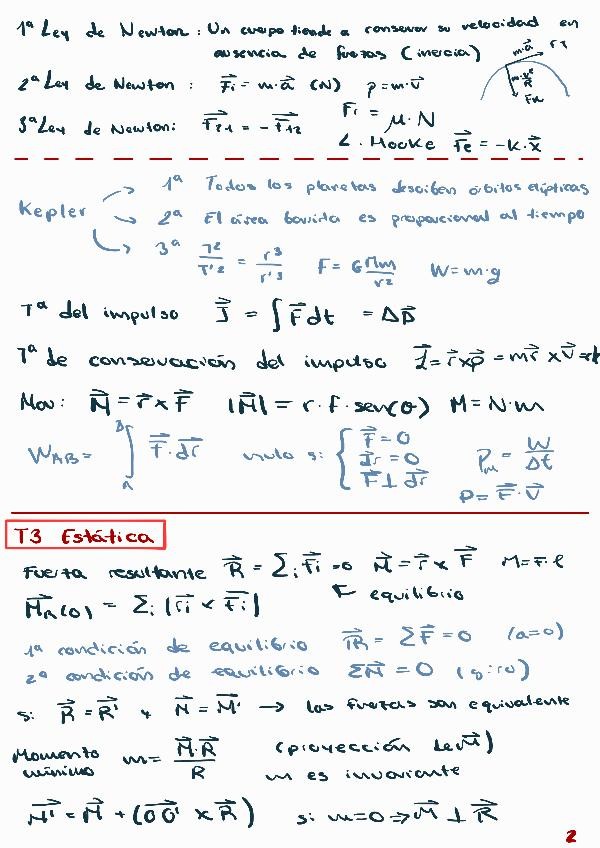 1ª Ley de Newton: Un cuerpo tiende a conservar su velocidad en
ausencia de fuerzas (inercia)
m·a⃗
m·v²/R
F_N
2ª Ley de Newton: F⃗i = m·a⃗ (N) p = m·v⃗
3ª Ley de Newton: F⃗21 = -F⃗12 Fi = μ·N
L. Hooke F⃗e = -K·x⃗
Kepler
1ª Todos los planetas desciben órbitas elípticas
2ª El área barrida es proporcional al tiempo
3ª T²/T'² = r³/r'³ F = G Mm/r² W = m·g
Tª del impulso I⃗ = ∫ F⃗ dt = Δp⃗
Tª de conservación del impulso L⃗ = r⃗ x p⃗ = m r⃗ x v⃗ =
Mov: M⃗ = r⃗ x F⃗ |M⃗| = r · f · sen(θ) M = N·m
W_AB = ∫_A^B F⃗ · dr⃗ nulo si: { F⃗ = 0
dr⃗ = 0
F⃗ ⊥ dr⃗
Pm = W/Δt
P = F⃗ · V⃗
T3 Estática
Fuerza resultante R⃗ = Σi F⃗i = 0 M⃗ = r⃗ x F⃗ M = F·l
M⃗R(0) = Σi |r⃗i x F⃗i| equilibrio
1ª condición de equilibrio R⃗ = ΣF⃗ = 0 (a=0)
2ª condición de equilibrio ΣM⃗ = 0 (giro)
si R⃗ = R⃗' y M⃗ = M⃗' → las fuerzas son equivalente
Momento mínimo m = M⃗·R⃗/R (proyección de M⃗)
m es invariante
M⃗' = M⃗ + (OO⃗' x R⃗) si m=0 ⇒ M⃗ ⊥ R⃗
2